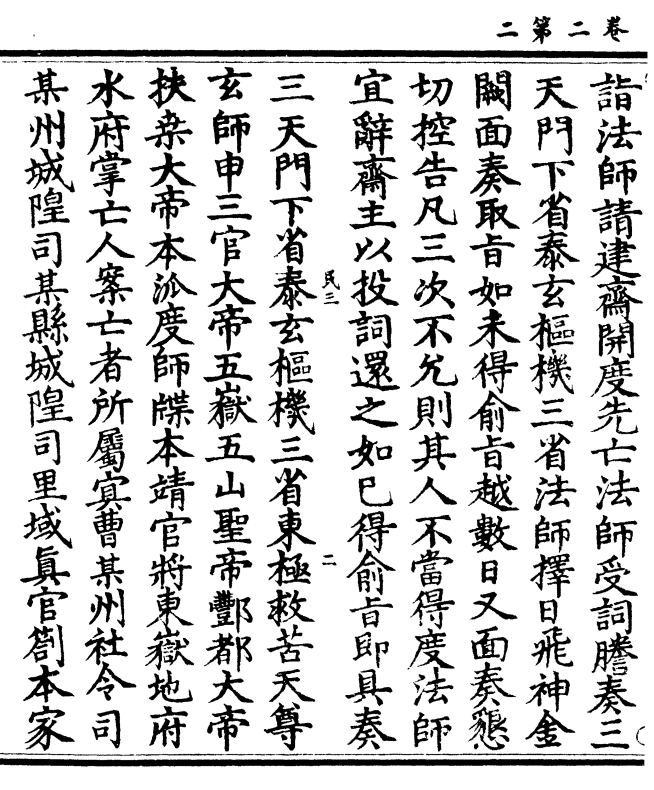 二第二卷
詣法師請建齋開度先亡法師受詞謄奏三
天門下省泰玄樞機三省法師擇日飛神金
闕面奏取旨如未得俞旨越數日又面奏懇
切控告凡三次不允則其人不當得度法師
宜辭齋主以投詞還之如已得俞旨即具奏
民三
二
三天門下省泰玄樞機三省東極救苦天尊
玄師申三官大帝五嶽五山聖帝酆都大帝
扶桒大帝本泒度師牒本靖官將東嶽地府
水府掌亡人案亡者所屬寘曹某州社令司
某州城隍司某縣城隍司里域眞官劄本家